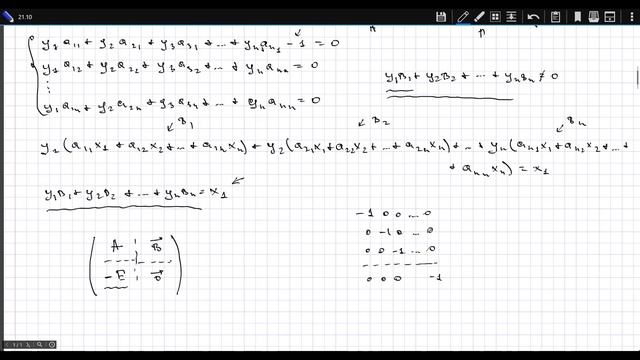 21.10
y₁a₁₁ + y₂a₂₁ + y₃a₃₁ + ... + yₙaₙ₁ - 1 = 0
y₁a₁₂ + y₂a₂₂ + y₃a₃₂ + ... + yₙaₙₙ = 0
⋮
y₁a₁ₙ + y₂a₂ₙ + y₃a₃ₙ + ... + yₙaₙₙ = 0
y₁B₁ + y₂B₂ + ... + yₙBₙ ≠ 0
B₁ B₂ Bₙ
y₁(a₁₁x₁ + a₁₂x₂ + ... + a₁ₙxₙ) + y₂(a₂₁x₁ + a₂₂x₂ + ... + a₂ₙxₙ) + ... + yₙ(aₙ₁x₁ + aₙ₂x₂ + ...
+ aₙₙxₙ) = x₁
y₁B₁ + y₂B₂ + ... + yₙBₙ = x₁
-1 0 0 ... 0
0 -1 0 ... 0
0 0 -1 ... 0
0 0 0 -1
A B
-E 0